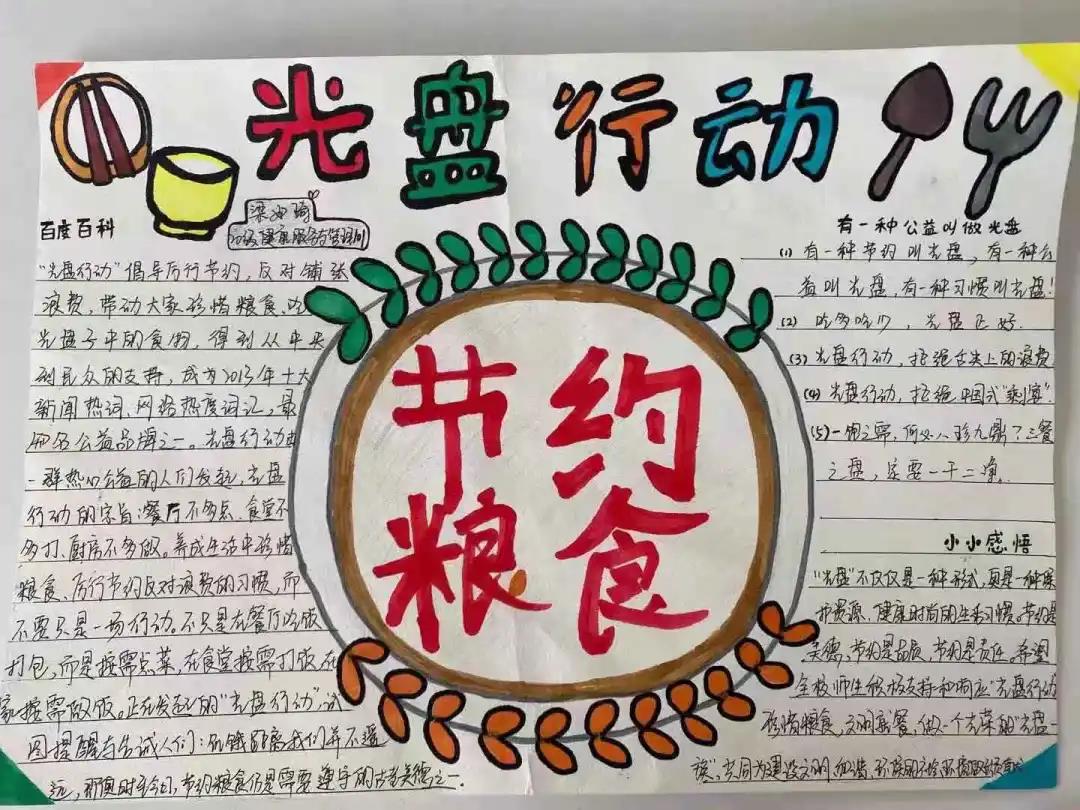 光盘行动
百度百科
"光盘行动"倡导厉行节约，反对铺张
浪费，带动大家珍惜粮食、吃
光盘子中的食物，得到从中央
到民众的支持，成为2013年十大
新闻热词、网络热度词汇，最
知名公益品牌之一。光盘行动由
一群热心公益的人们发起，光盘
行动的宗旨：餐厅不多点、食堂不
多打、厨房不多做。养成生活中珍惜
粮食、厉行节约反对浪费的习惯，而
不要只是一场行动。不只是在餐厅吃饭
打包，而是按需点菜，在食堂按需打饭，在
家按需做饭。正在发起的"光盘行动"，试
图提醒与告诫人们：饥饿距离我们并不遥
远，即便时至今日，节约粮食仍是需要遵守的古老美德之一
节约
粮食
有一种公益叫做光盘
(1) 有一种节约叫光盘，有一种公
益叫光盘，有一种习惯叫光盘！
(2) 吃多吃少，光盘正好.
(3) 光盘行动，拒绝舌尖上的浪费
(4) 光盘行动，拒绝中国式"剩宴".
(5) 一饱之需，何必八珍九鼎？三餐
之盘，还要一干二净.
小小感悟
"光盘"不仅仅是一种形式，更是一种
护资源、健康时尚的生活习惯。节约是
美德，节约是品质，节约是责任。希望
全校师生积极支持和响应"光盘行动
珍惜粮食，文明就餐，做一个光荣的"光盘一
族"，共同为建设文明